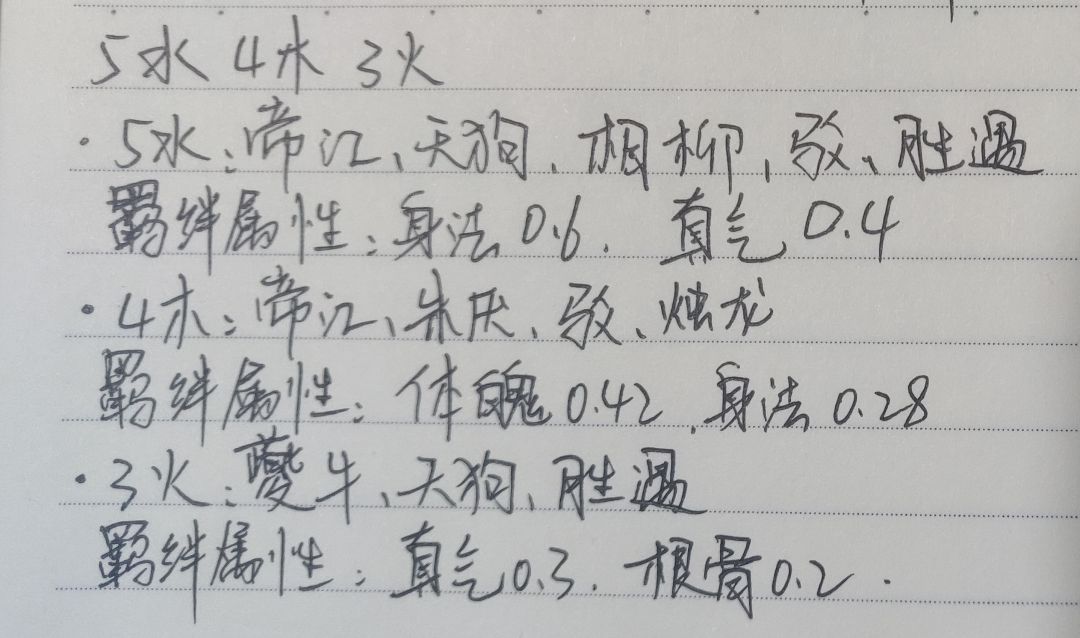 5水 4木 3火
·5水:帝江、天狗、相柳、驳、胜遇
羁绊属性:身法0.6. 真气0.4
·4木:帝江、朱厌、驳、烛龙
羁绊属性:体魄0.42.身法0.28
·3火:夔牛、天狗、胜遇
羁绊属性:真气0.3. 根骨0.2.